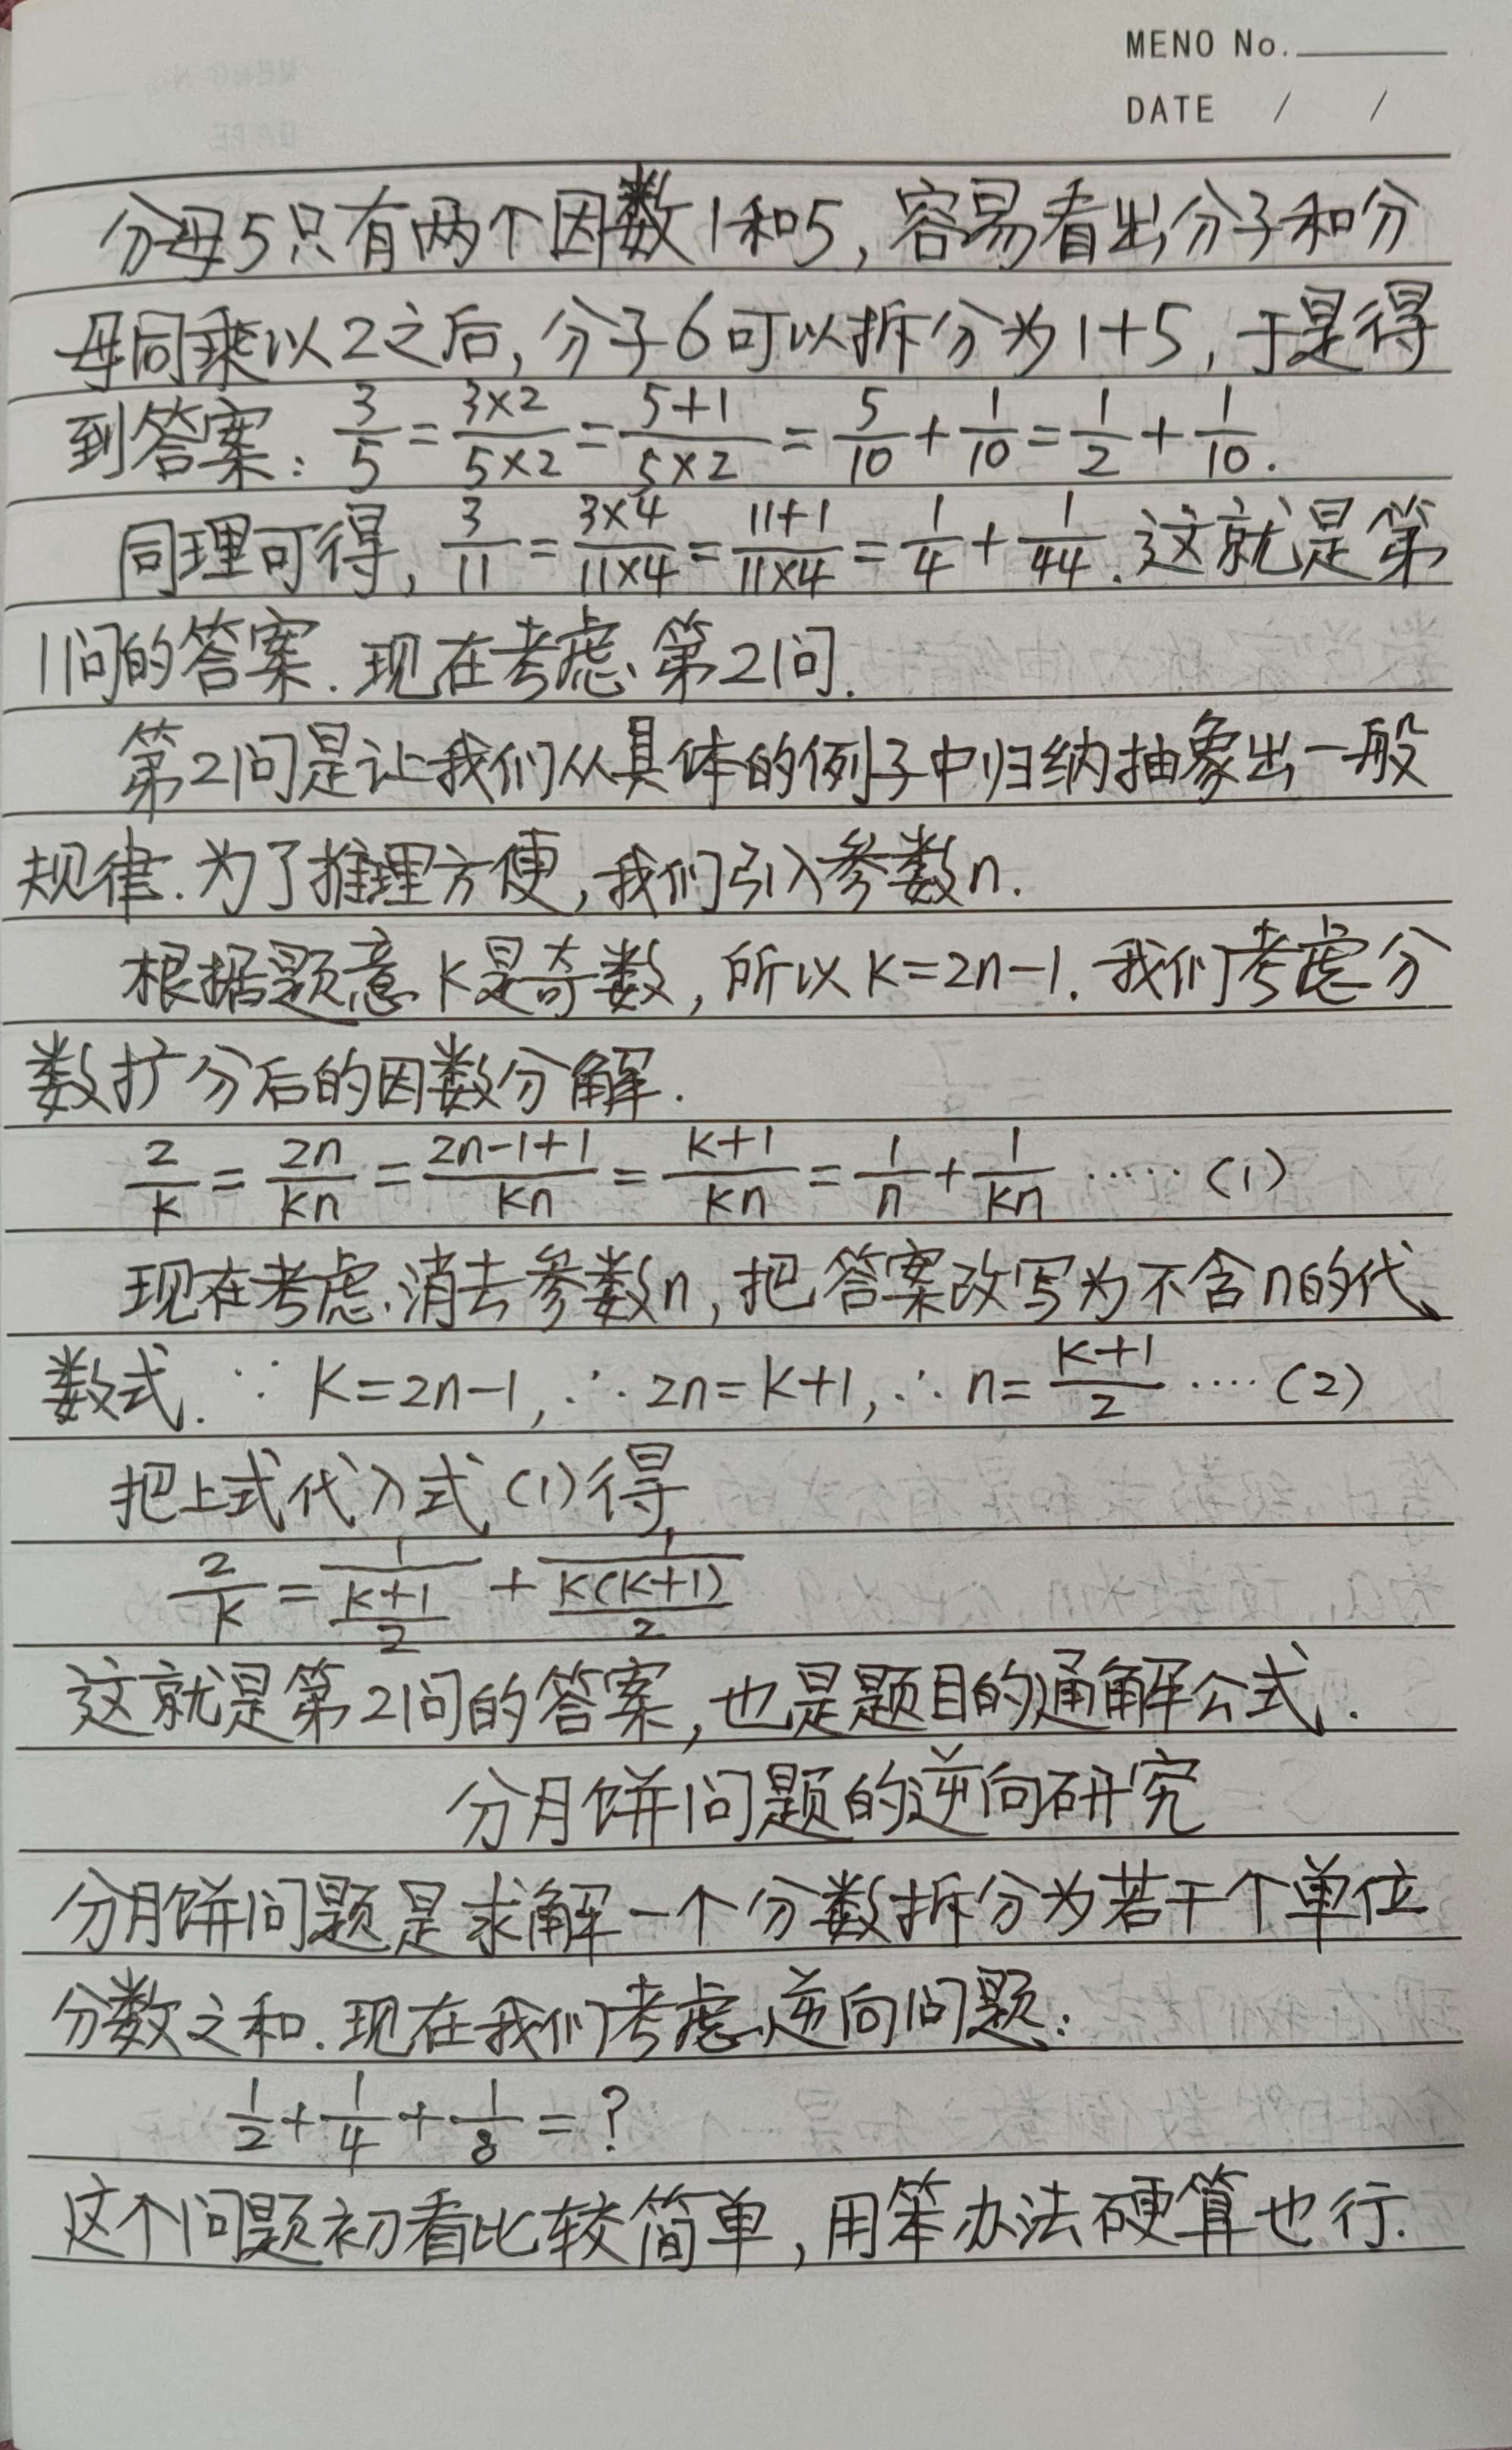 MENO No.
DATE / /
分母5只有两个因数1和5,容易看出分子和分
母同乘以2之后,分子6可以拆分为1+5,于是得
到答案: 3/5 = 3×2/5×2 = 5+1/5×2 = 5/10 + 1/10 = 1/2 + 1/10.
同理可得, 3/11 = 3×4/11×4 = 11+1/11×4 = 1/4 + 1/44. 这就是第
1问的答案. 现在考虑第2问.
第2问是让我们从具体的例子中归纳抽象出一般
规律. 为了推理方便,我们引入参数n.
根据题意k是奇数, 所以k=2n-1. 我们考虑分
数扩分后的因数分解.
2/k = 2n/kn = 2n-1+1/kn = k+1/kn = 1/n + 1/kn ······ (1)
现在考虑消去参数n, 把答案改写为不含n的代
数式. ∵ k=2n-1, ∴ 2n=k+1, ∴ n= k+1/2 ···· (2)
把上式代入式(1)得,
2/k = 1/(k+1/2) + 1/(k(k+1)/2)
这就是第2问的答案, 也是题目的通解公式.
分月饼问题的逆向研究
分月饼问题是求解一个分数拆分为若干个单位
分数之和. 现在我们考虑逆向问题:
1/2 + 1/4 + 1/8 = ?
这个问题初看比较简单, 用笨办法硬算也行.